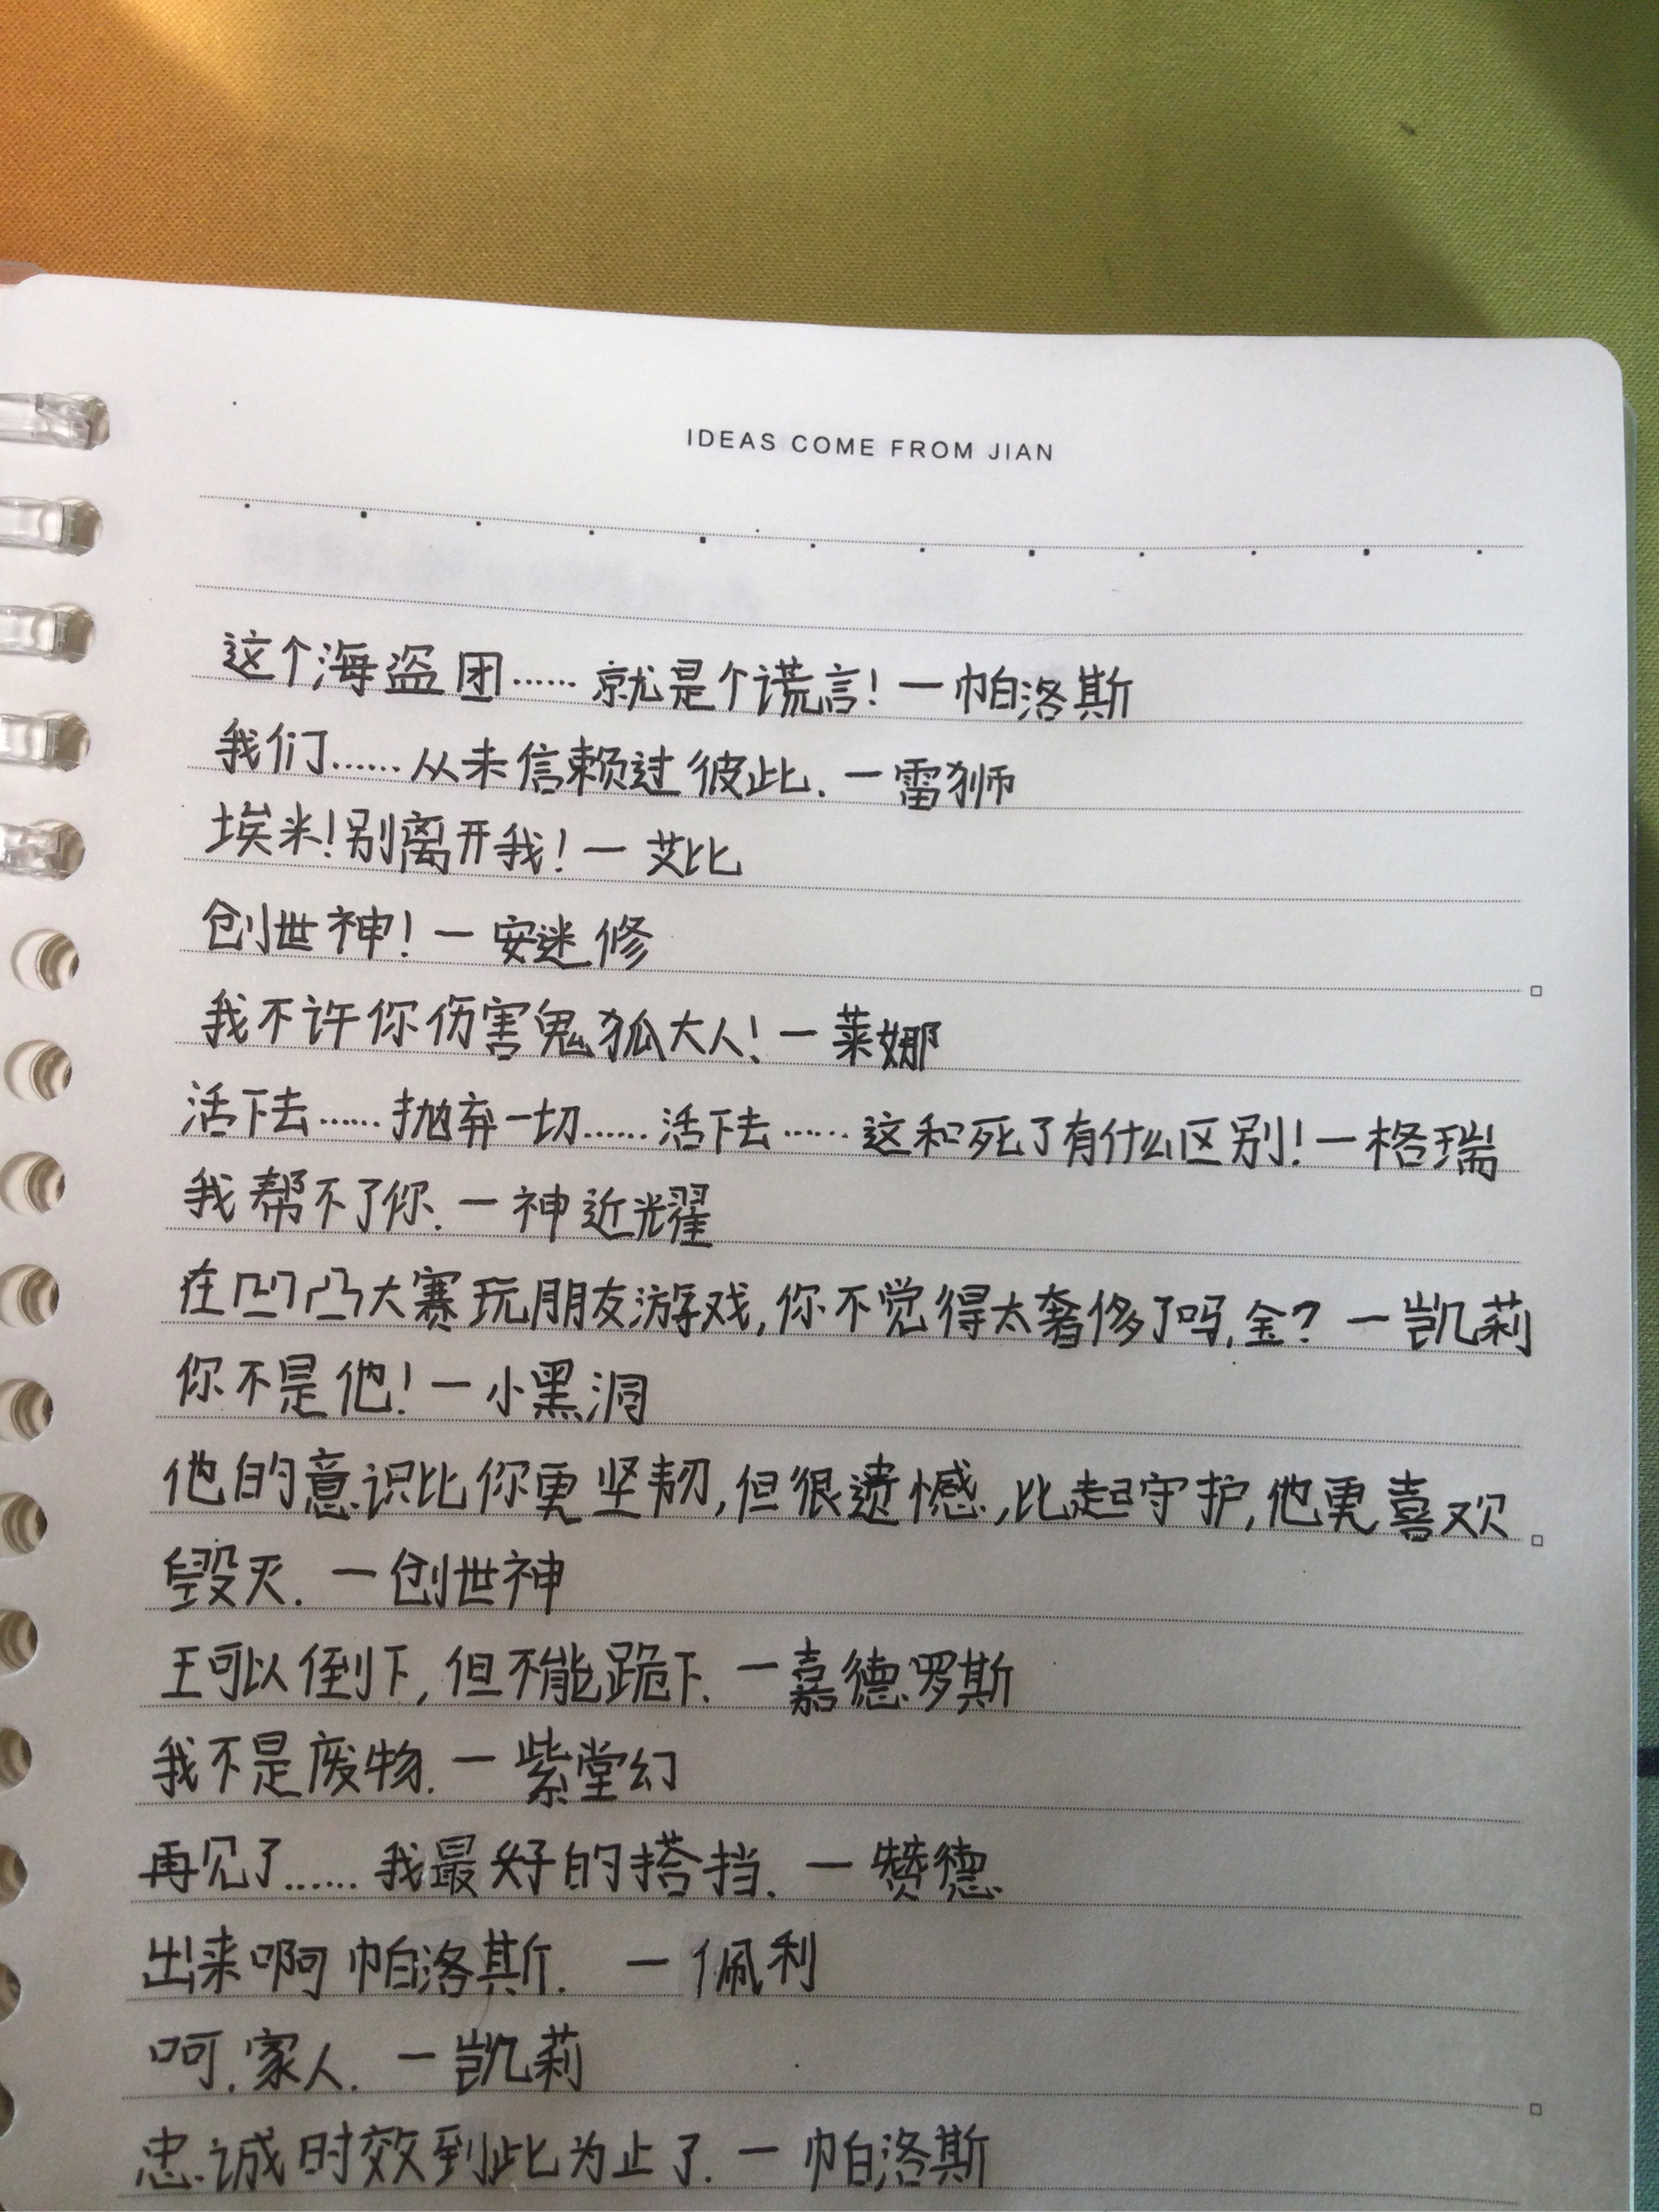 IDEAS COME FROM JIAN
这个海盗团……就是个谎言!—帕洛斯
我们……从未信赖过彼此.—雷狮
埃米!别离开我!—艾比
创世神!—安迷修
我不许你伤害鬼狐大人!—莱娜
活下去……抛弃一切……活下去……这和死了有什么区别!—格瑞
我帮不了你.—神近耀
在凹凸大赛玩朋友游戏,你不觉得太奢侈了吗,金?—凯莉
你不是他!—小黑洞
他的意识比你更坚韧,但很遗憾,比起守护,他更喜欢
毁灭.—创世神
王可以倒下,但不能跪下.—嘉德罗斯
我不是废物.—紫堂幻
再见了……我最好的搭挡.—赞德
出来啊帕洛斯.—佩利
呵,家人.—凯莉
忠诚时效到此为止了.—帕洛斯